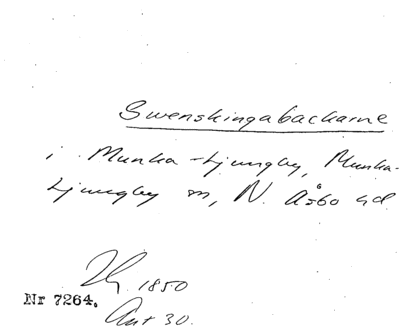 Swenskingabackarne
i Munka-Ljungby, Munka-
Ljungby sn, N. Åsbo hd
1850
Nr 7264.
Akt 30.